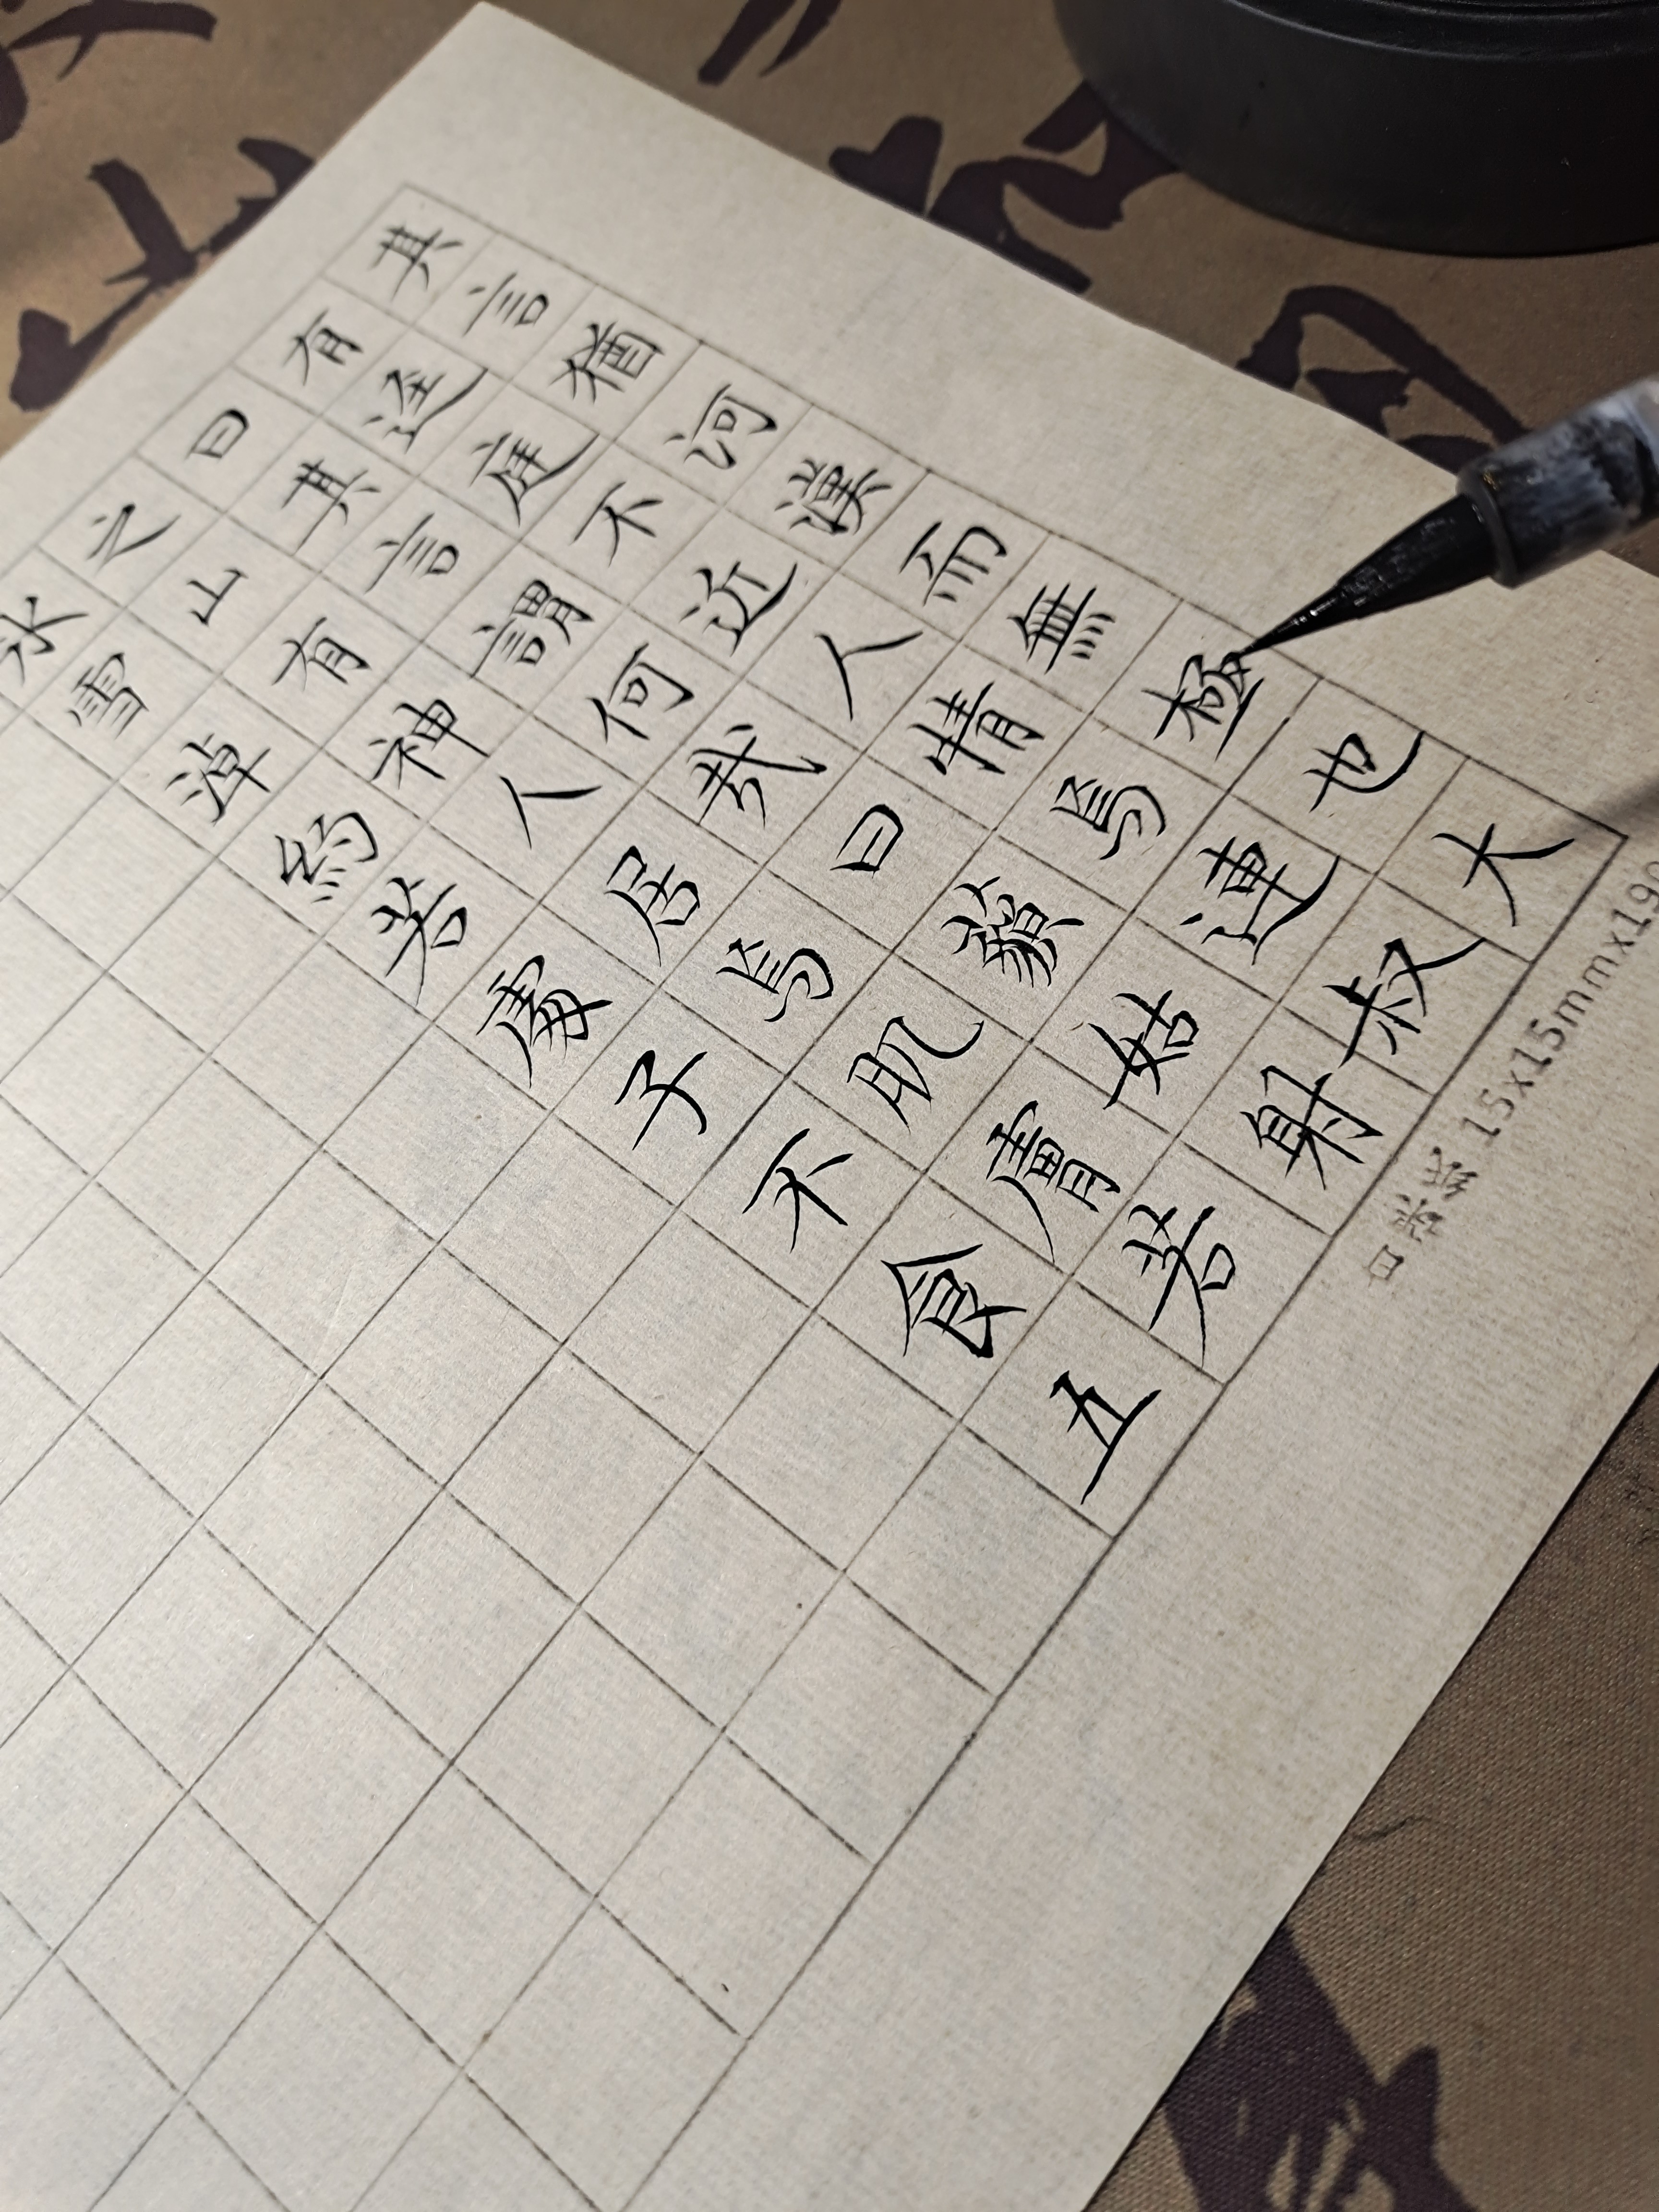 其言猶河漢而無極也大
有逕庭不近人情焉連叔
曰其言謂何哉曰藐姑射
之山有神人居焉肌膚若
雪淖約若處子不食五
15x15mmx190